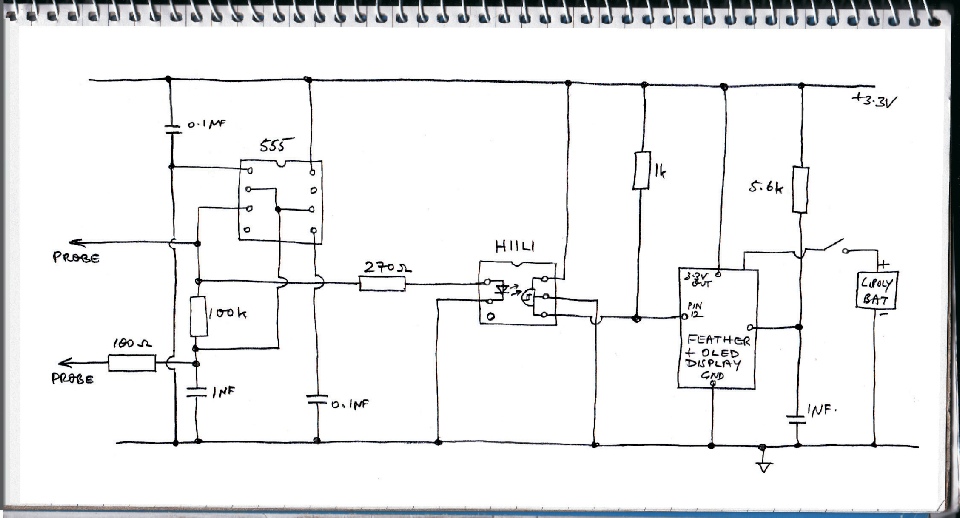 +3.3V
0.1NF
555
1k
5.6k
PROBE
H11L1
270Ω
+
LIPOLY
BAT
-
3.3V
OUT
PIN
12
100k
FEATHER
+ OLED
DISPLAY
GND
100Ω
PROBE
1NF
0.1NF
1NF.